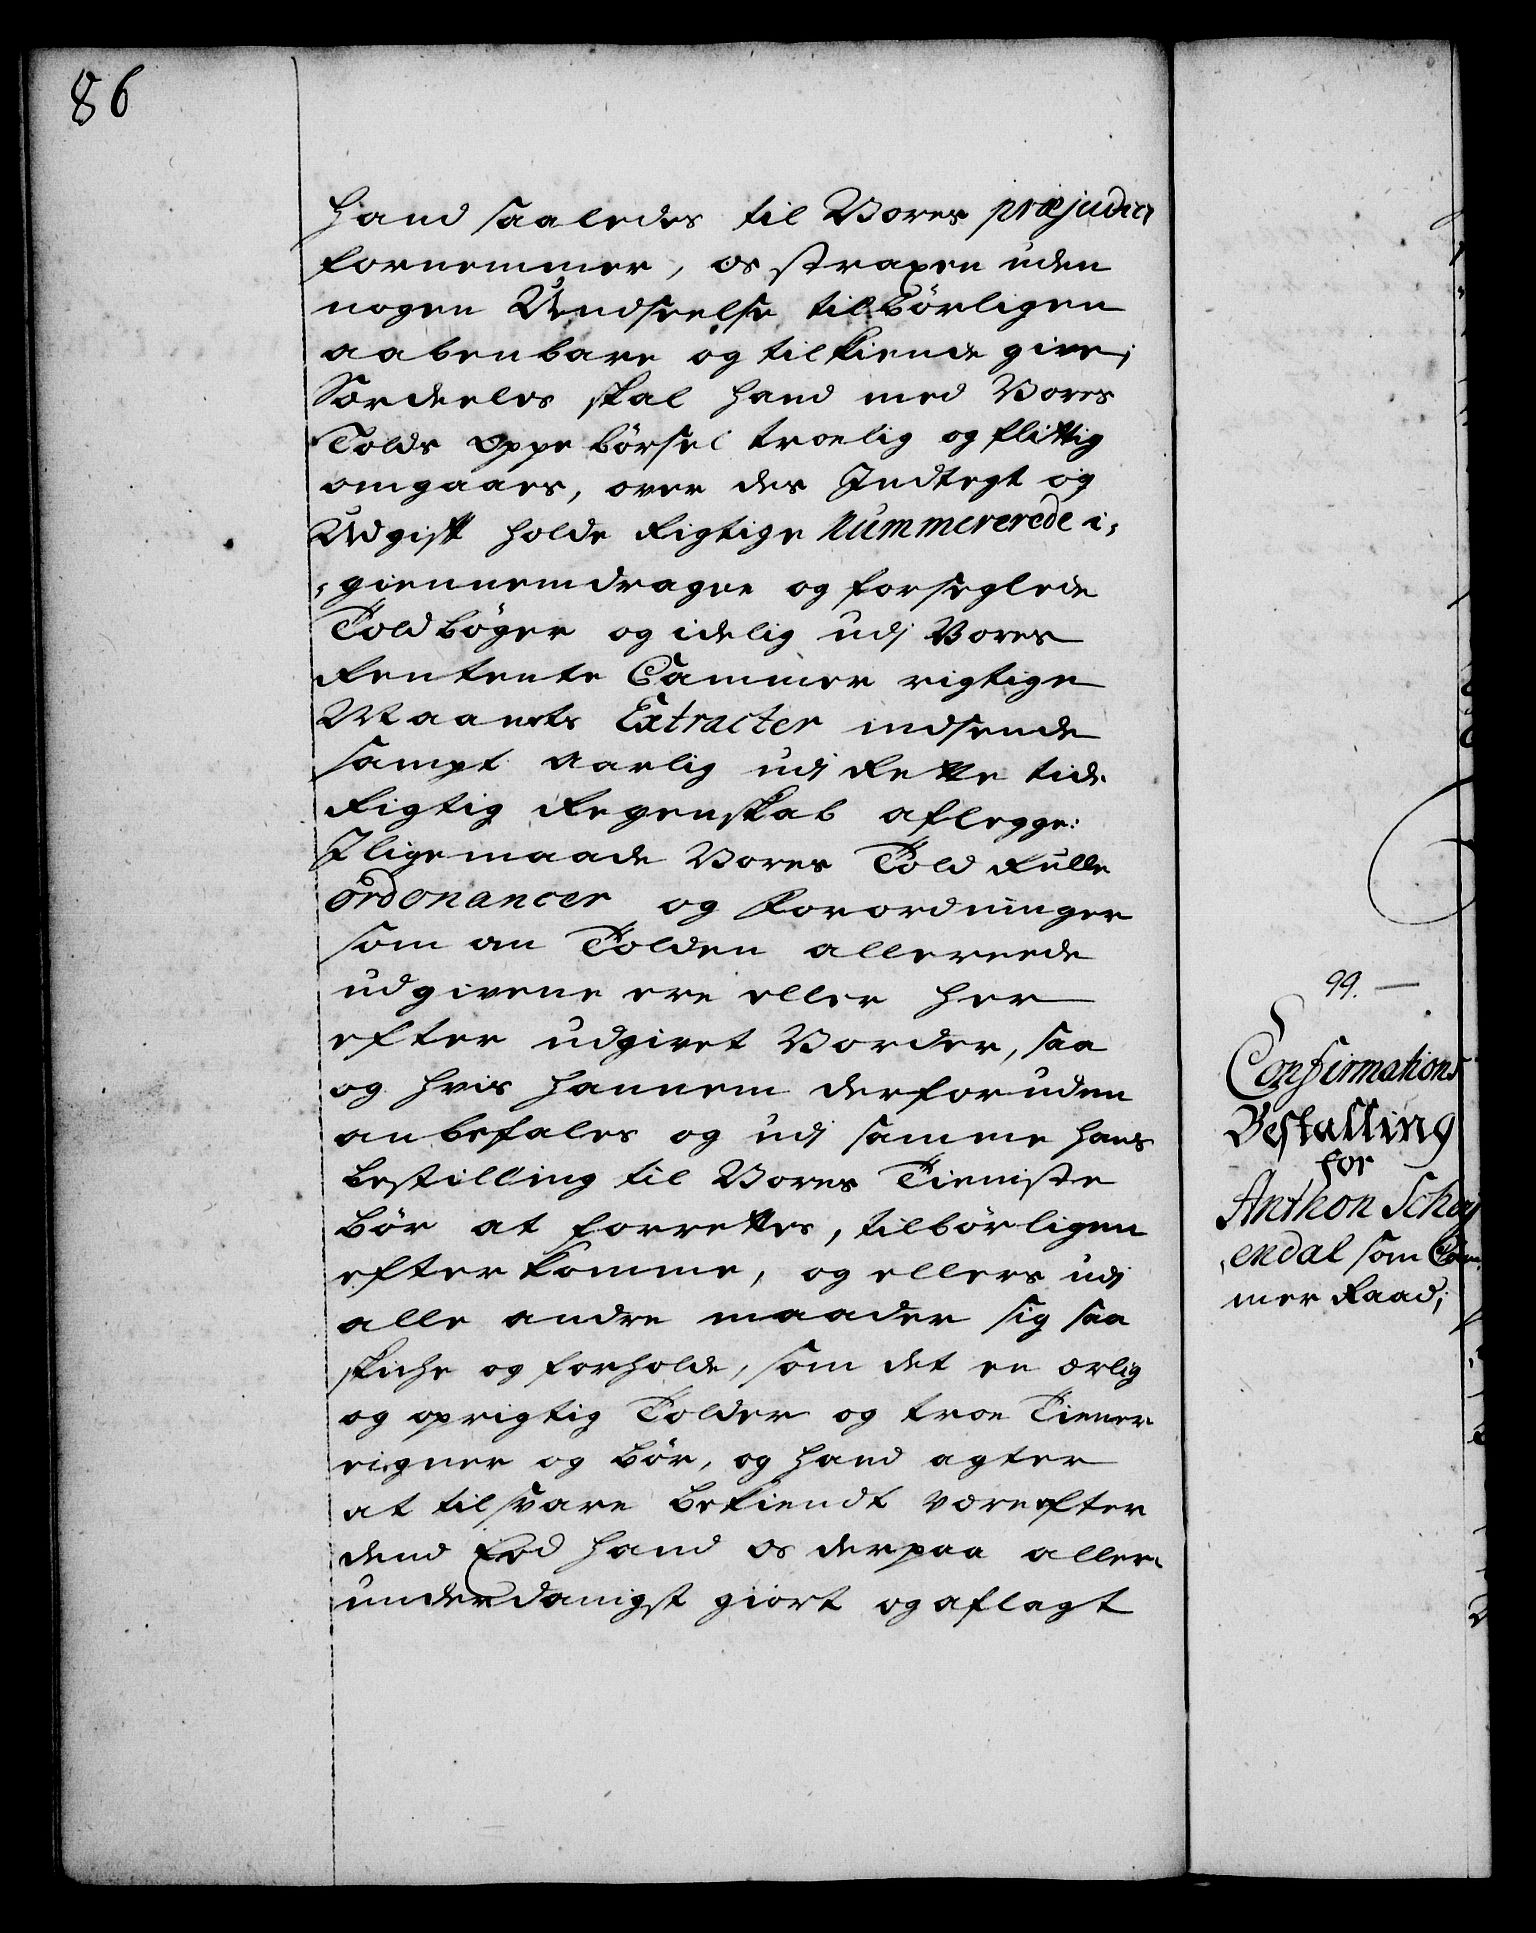 86
hand saaledes til Vores præjudice
fornemmer, os straxen uden
nogen Undseelse tilbörligen
aabenbare og tilkiende give;
Særdeeles skal hand med Vores
Tolds oppebörsel troelig og flittig
omgaaes, over des Indtegt og
Udgift holde Rigtige Nummererede i,
,giennemdragne og forseglede
Toldbøger og idelig udj Vores
Rentente Cammer rigtige
Maanets Extracter indsende
sampt aarlig udj Rette tide
Rigtig Regenskab aflegge:
Iligemaade Vores Told Rulle
ordonancer og Forordninger
som om Tolden allereede
udgivene ere eller her
efter udgivet Vorder, saa
og hvis hannem derforuden
anbefales og udj samme hans
bestilling til Vores Tieniste
bör at forrettes, tilbörligen
efterkomme, og ellers udj
alle andre maader sig saa
skiche og forholde, som det en ærlig
og oprigtig Tolder og troe Tiener
eigner og bör, og hand agter
at tilsvare bekiendt være efter
dend Eed hand os derpaa aller,
underdanigst giort og aflagt
99.
Confirmations
Bestalling
for
Anthon Schøy
,endal som Cam,
mer Raad;